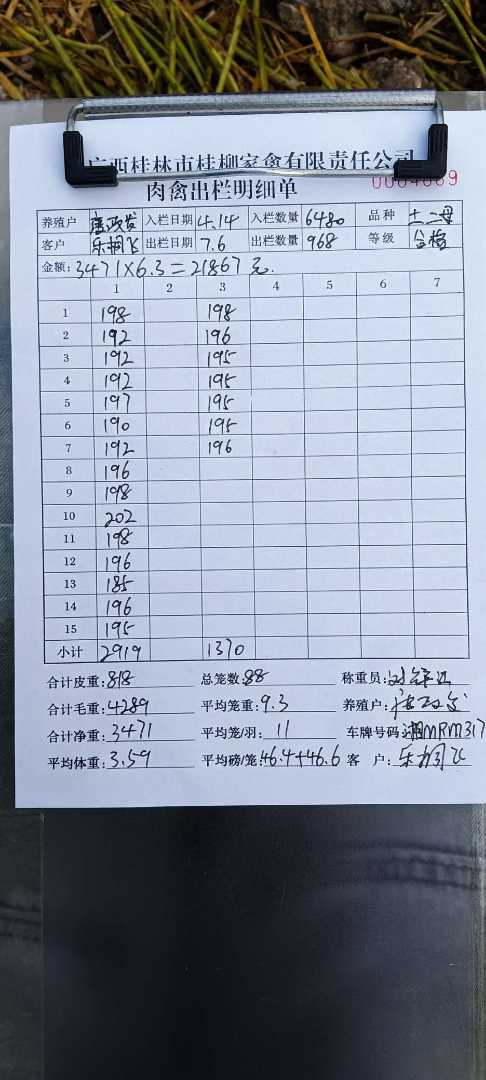 广西桂林市桂柳家禽有限责任公司
肉禽出栏明细单
养殖户 唐政发 入栏日期 4.14 入栏数量 6480 品种 土二母
客户 乐桐飞 出栏日期 7.6 出栏数量 968 等级 合格
金额: 3471×6.3=21867元.
1 2 3 4 5 6 7
1 198 198
2 192 196
3 192 195
4 192 195
5 197 195
6 190 195
7 192 196
8 196
9 198
10 202
11 198
12 196
13 185
14 196
15 195
小计 2919 1370
合计皮重: 818 总笼数: 88 称重员:
合计毛重: 4289 平均笼重: 9.3 养殖户: 唐政发
合计净重: 3471 平均笼/羽: 11 车牌号码: 湘MRM317
平均体重: 3.59 平均磅/笼: 46.4+46.6 客 户: 乐桐飞